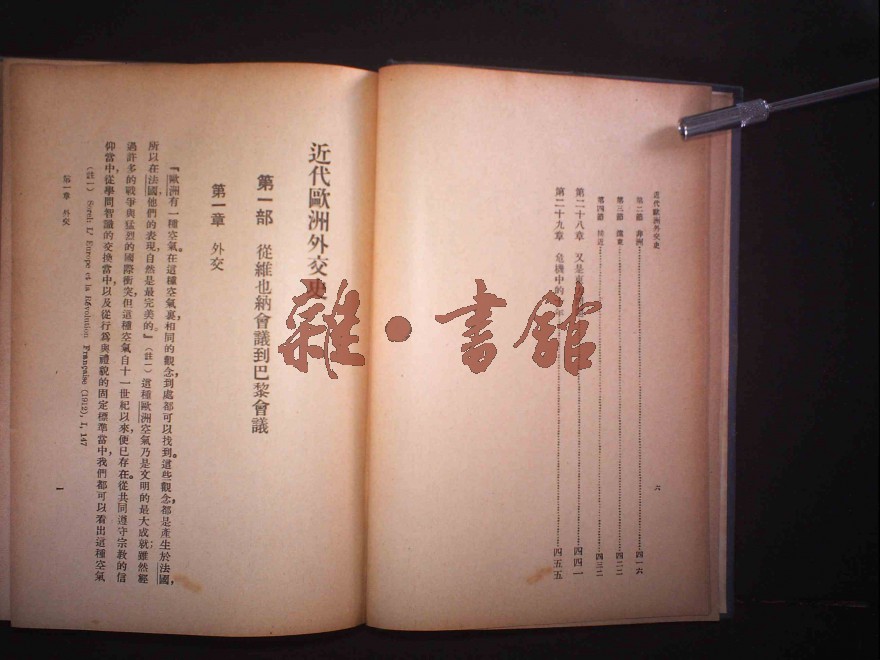 近代歐洲外交史
第二節 非洲 四一六
第三節 遠東 四二二
第四節 四三二
第二十八章 又是東 四四一
第二十九章 危機中的 年 四五五
六
近代歐洲外交史
第一部 從維也納會議到巴黎會議
第一章 外交
『歐洲有一種空氣。在這種空氣裏，相同的觀念，到處都可以找到。這些觀念，都是產生於法國，
所以在法國，他們的表現，自然是最完美的。』（註一）這種歐洲空氣乃是文明的最大成就；雖然經
過許多的戰爭與猛烈的國際衝突，但這種空氣自十一世紀以來，便已存在。從共同遵守宗教的信
仰當中，從學問智識的交換當中，以及從行爲與禮貌的固定標準當中，我們都可以看出這種空氣
（註一） Sorel: L' Europe et la Révolution Française (1912), I, 147
第一章 外交
一
雜·書館